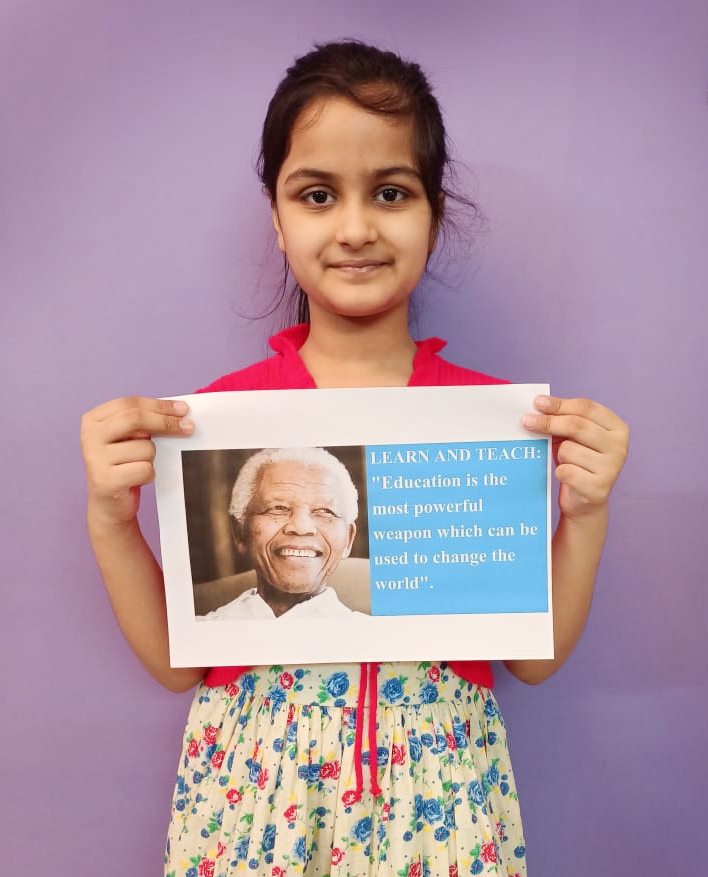 LEARN AND TEACH:
"Education is the
most powerful
weapon which can be
used to change the
world".